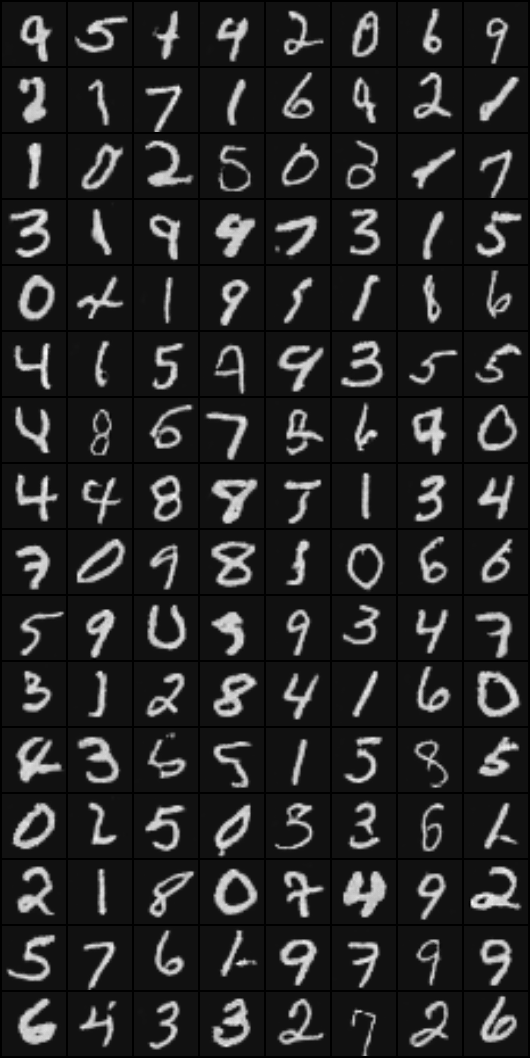 9 5 4 4 2 0 6 9
2 1 7 1 6 9 2 1
1 0 2 5 0 3 1 7
3 1 9 9 7 3 1 5
0 4 1 9 5 1 8 6
4 6 5 9 9 3 5 5
4 8 6 7 8 6 9 0
4 4 8 8 5 1 3 4
7 0 9 8 3 0 6 6
5 9 0 5 9 3 4 7
3 1 2 8 4 1 6 0
4 3 5 5 1 5 8 5
0 2 5 0 3 3 6 1
2 1 8 0 7 4 9 2
5 7 6 1 9 7 9 9
6 4 3 3 2 7 2 6